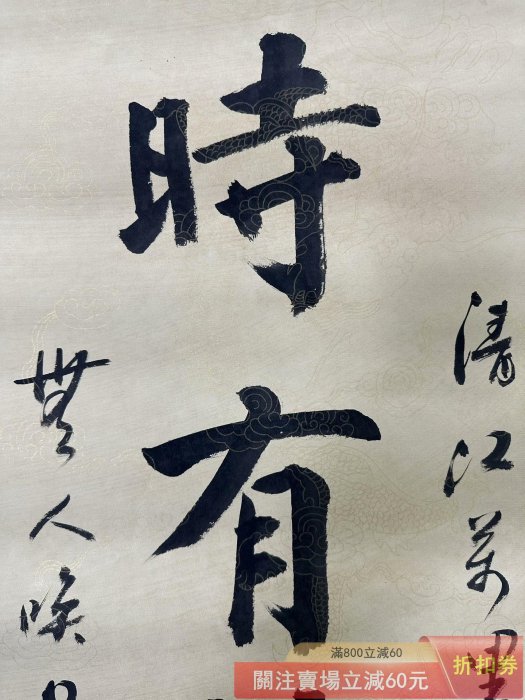 清江萬
時有
無人喚
滿800立減60
關注賣場立減60元
折扣券